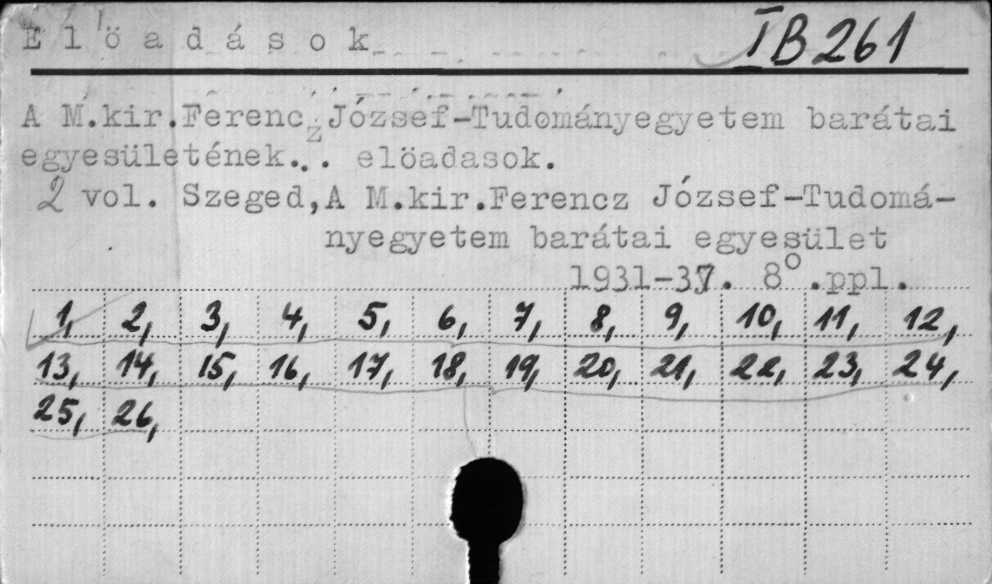 Elöadások IB261
A M.kir.Ferencz József-Tudományegyetem barátai
egyesületének... elöadasok.
2 vol. Szeged,A M.kir.Ferencz József-Tudomá-
nyegyetem barátai egyesület
1931-37. 8°.ppl.
1, 2, 3, 4, 5, 6, 7, 8, 9, 10, 11, 12,
13, 14, 15, 16, 17, 18, 19, 20, 21, 22, 23, 24,
25, 26,